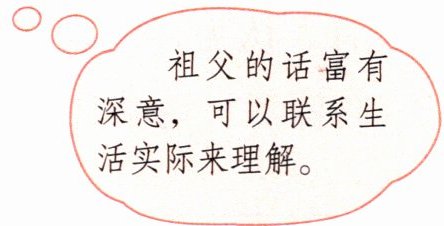 祖父的话富有
深意，可以联系生
活实际来理解。